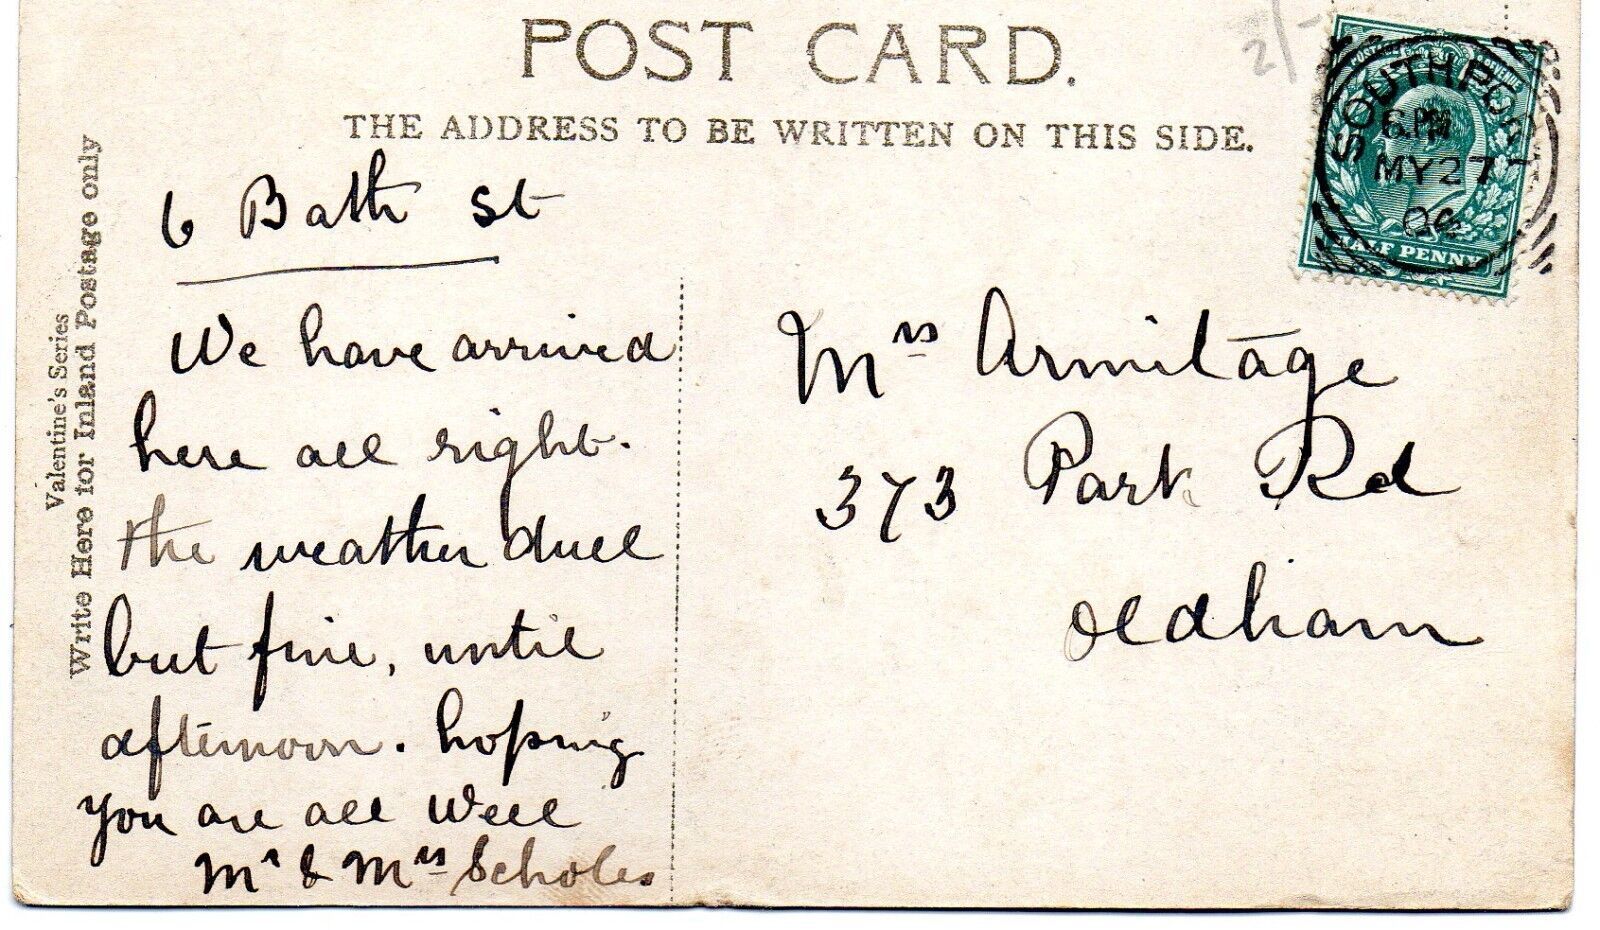 POST CARD.
THE ADDRESS TO BE WRITTEN ON THIS SIDE.
Valentine's Series
Write Here for Inland Postage only
2/-
SOUTHPORT
6.PM
MY 27
HALF PENNY
6 Bath St
We have arrived
here all right.
the weather dull
but fine, until
afternoon. hoping
you are all well
Mr & Mrs Scholes
Mrs Armitage
373 Park Rd
Oldham